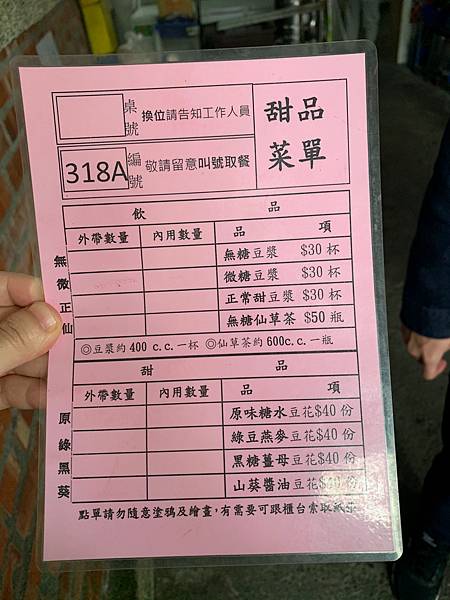 甜品
菜單
桌號 換位請告知工作人員
318A 編號 敬請留意叫號取餐
飲品
外帶數量 內用數量 品項
無 無糖豆漿 $30 杯
微 微糖豆漿 $30 杯
正 正常甜豆漿 $30 杯
仙 無糖仙草茶 $50 瓶
◎豆漿約400 c.c.一杯 ◎仙草茶約600c.c.一瓶
甜品
外帶數量 內用數量 品項
原 原味糖水豆花$40 份
綠 綠豆燕麥豆花$40 份
黑 黑糖薑母豆花$40 份
葵 山葵醬油豆花$40 份
點單請勿隨意塗鴉及繪畫,有需要可跟櫃台索取紙